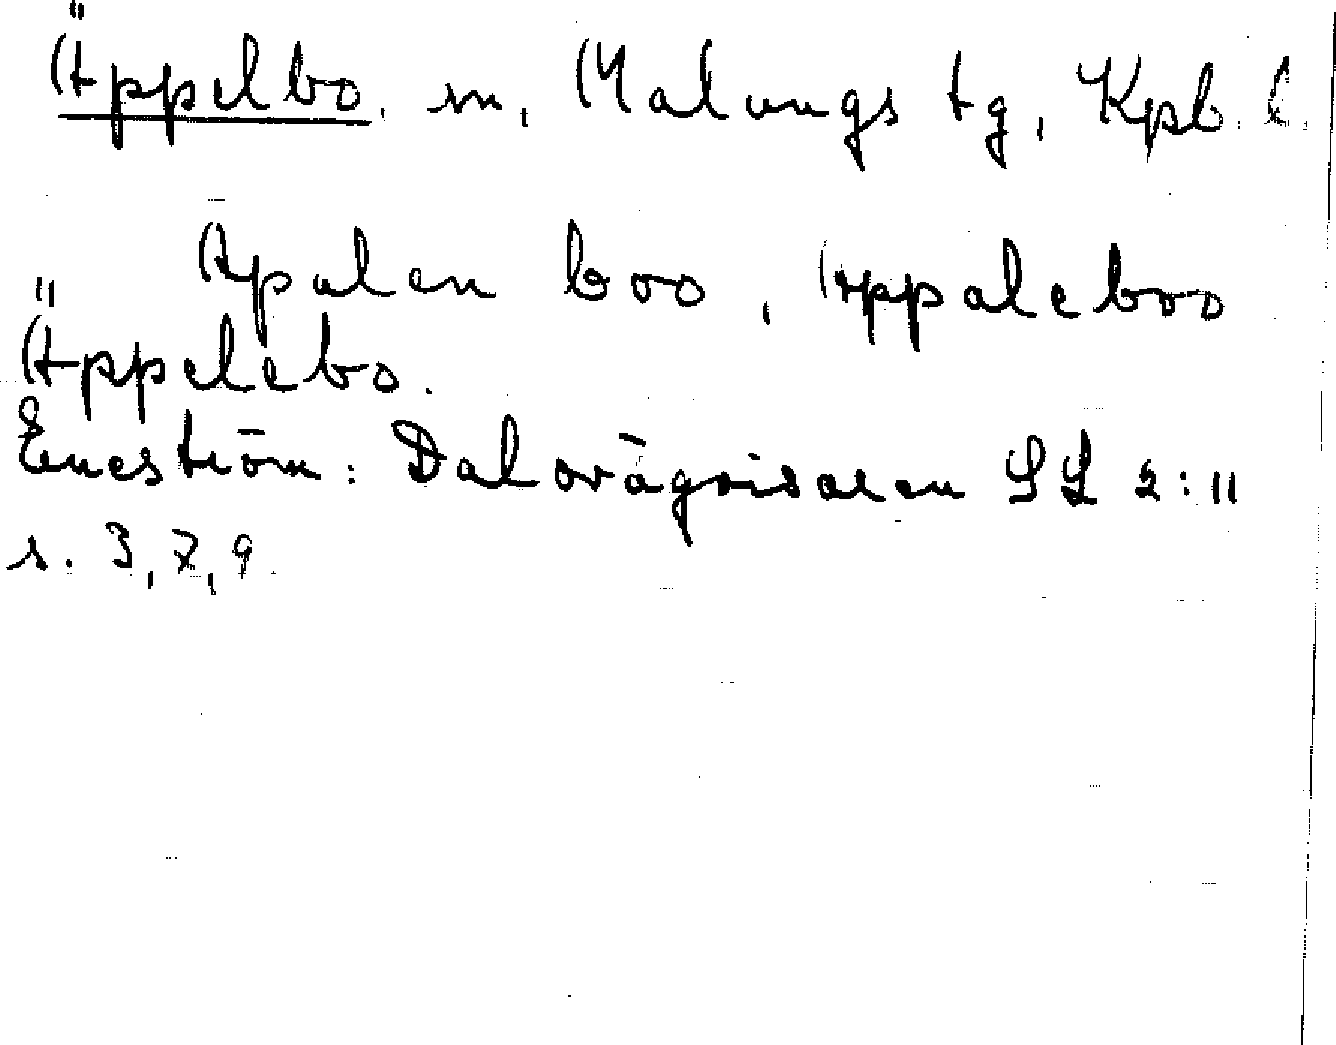 Äppelbo. sn, Malungs tg, Kpb. l.
Apalen boo, Appaleboo
Äppelebo.
Eneström: Dalovägvisaren SL 2:11
s. 3, 7, 9.